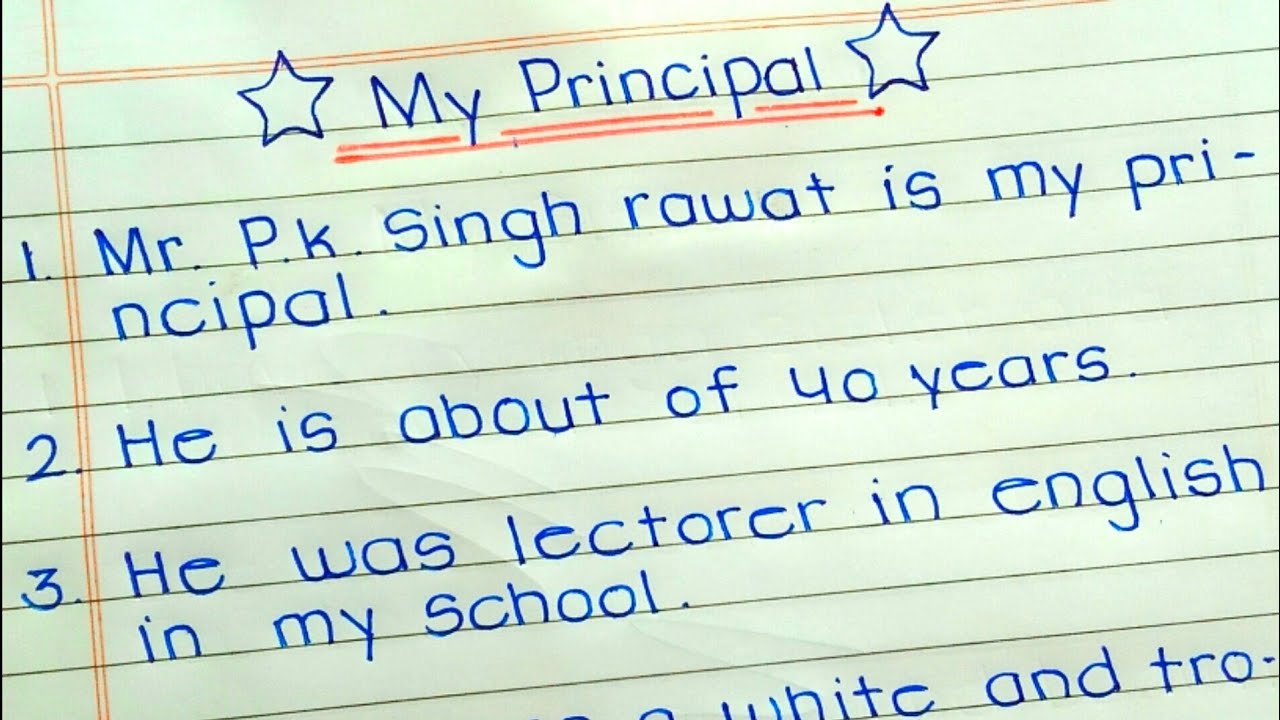 My Principal
1. Mr. P.K. Singh rawat is my pri-
ncipal.
2. He is about of 40 years.
3. He was lectorer in english
in my school.
white and tro-